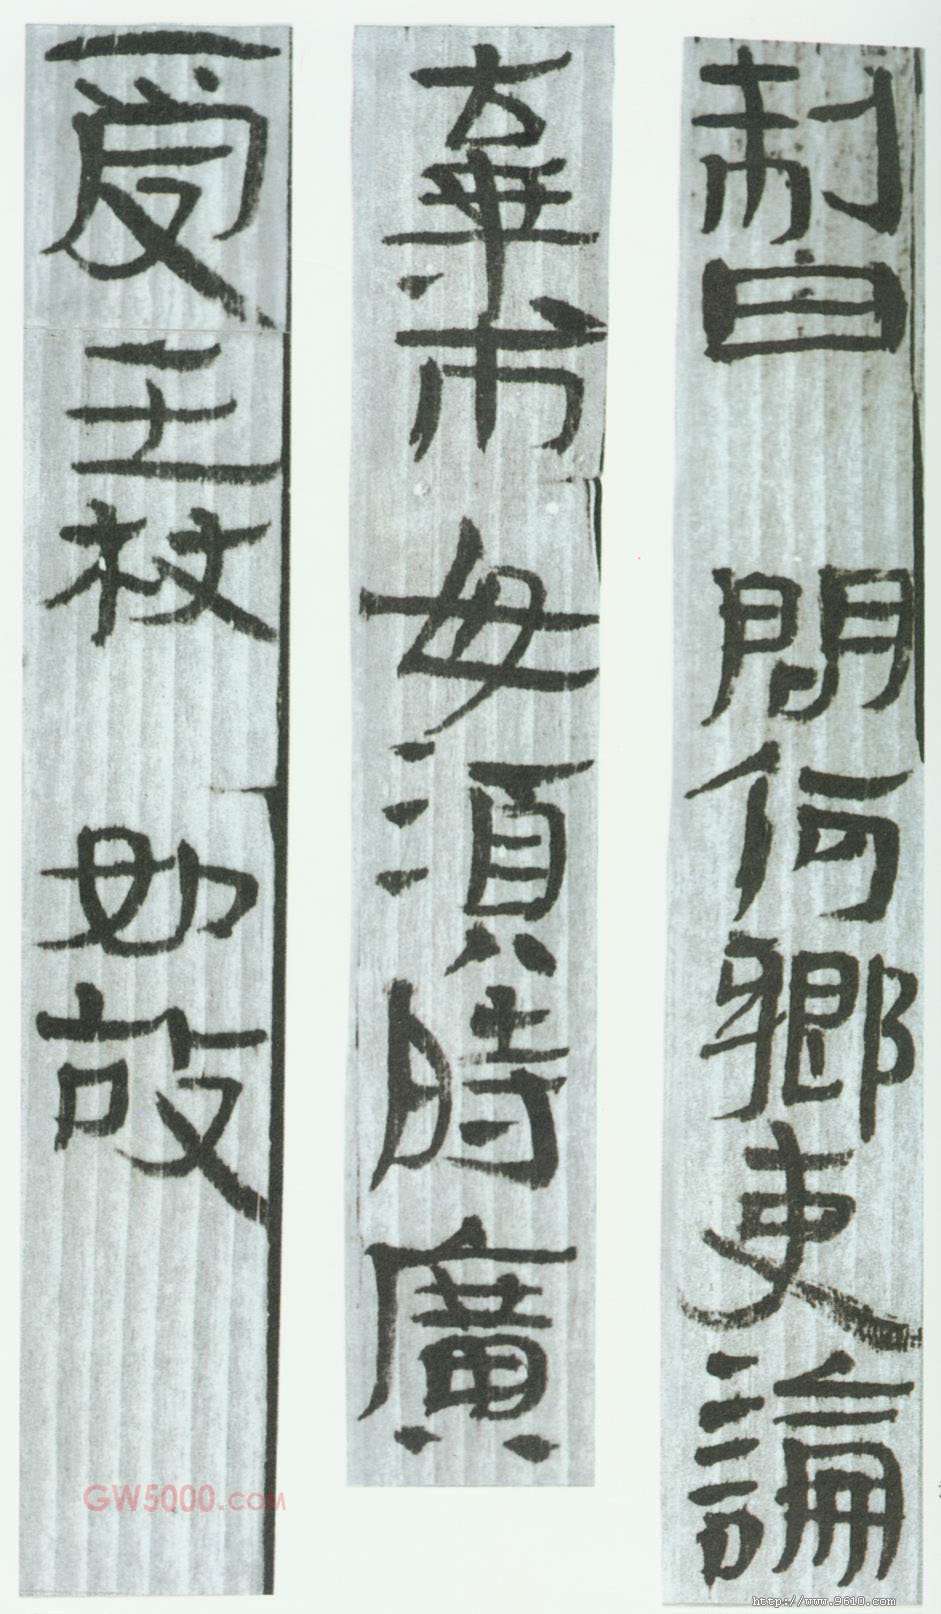 制曰 問何鄉吏論
棄市毋須時廣
受王杖 如故
GW5000.COM
http://www.9610.com